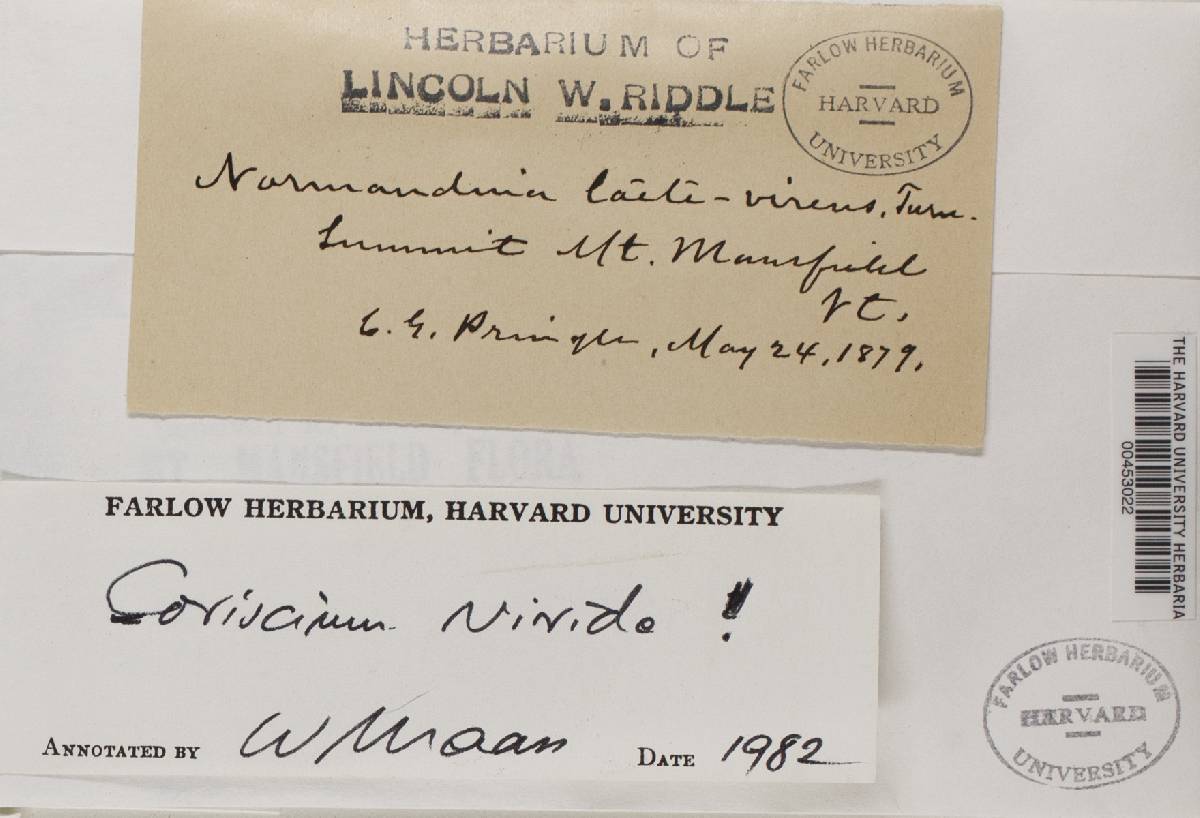 HERBARIUM OF
LINCOLN W. RIDDLE
FARLOW HERBARIUM
HARVARD
UNIVERSITY
Normandina laete-virens, Turn.
Summit Mt. Mansfield
Vt.
C. G. Pringle, May 24, 1879.
MANSFIELD FLORA
FARLOW HERBARIUM, HARVARD UNIVERSITY
Coriscium viride !
ANNOTATED BY W Maas DATE 1982
THE HARVARD UNIVERSITY HERBARIA
00453022
FARLOW HERBARIUM
HARVARD
UNIVERSITY